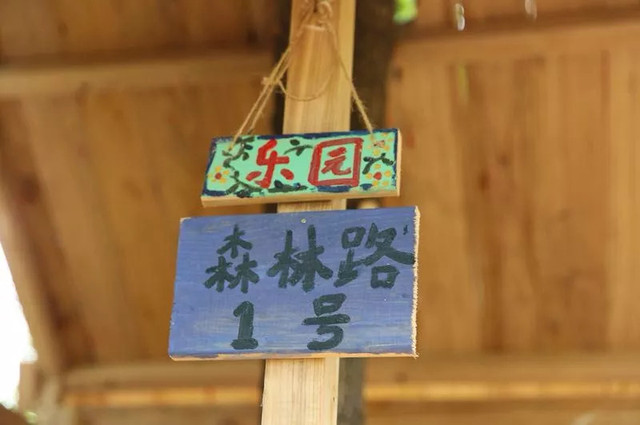 乐园
森林路
1号